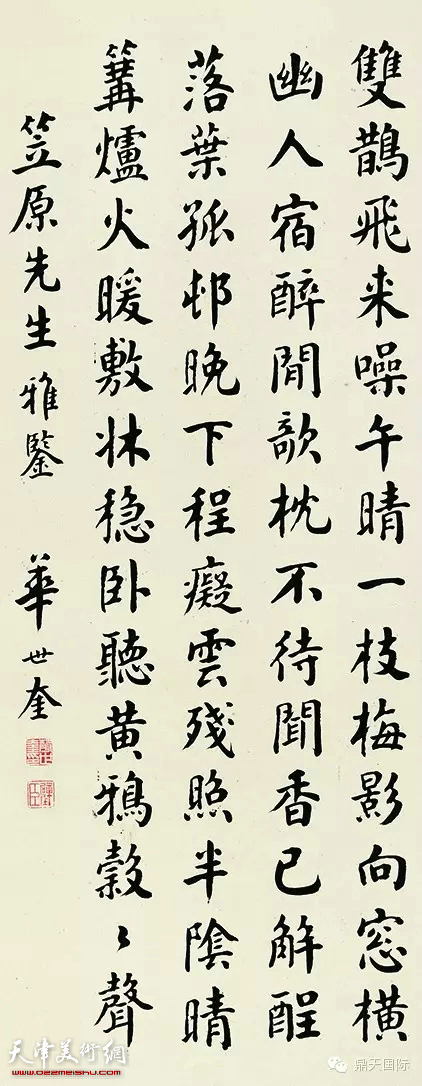 雙鵲飛来噪午晴一枝梅影向窓横
幽人宿醉閒欹枕不待聞香已解酲
落葉孤邨晚下程癡雲殘照半陰晴
篝爐火暖敷牀穏卧聽黄鴉穀〻聲
笠原先生雅鑒 華世奎
天津美術網
www.022meishu.com
鼎天国际